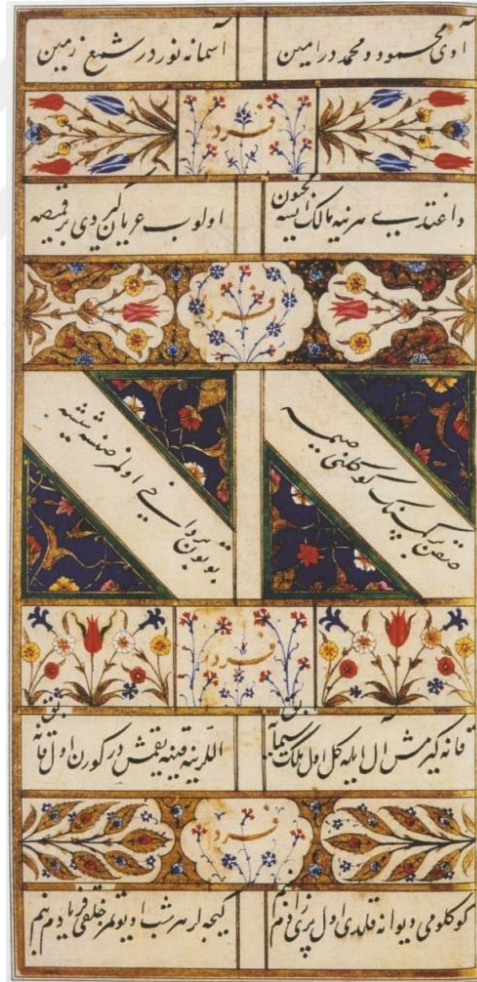 آدی محمود و محمد در امین
آسمانه نور در شمع زمین
فرد
داغتدی هر نیه مالک ایسه مجنون
اولوب عریان کیردی بر قمیصه
فرد
صقن بر کسنک کوکلنی صیمه
بوتون بر داخی اولمز صنسه شیشه
فرد
قانه کیرمش آل ایله کل اول ملک سیمایه بق
اللرینه قینه یقمش در کورن اول قانه بق
فرد
کوکلومی دیوانه قلدی اول پری زادم بنم
کیجه لر هر شب اویوتمز خلقی فریادم بنم